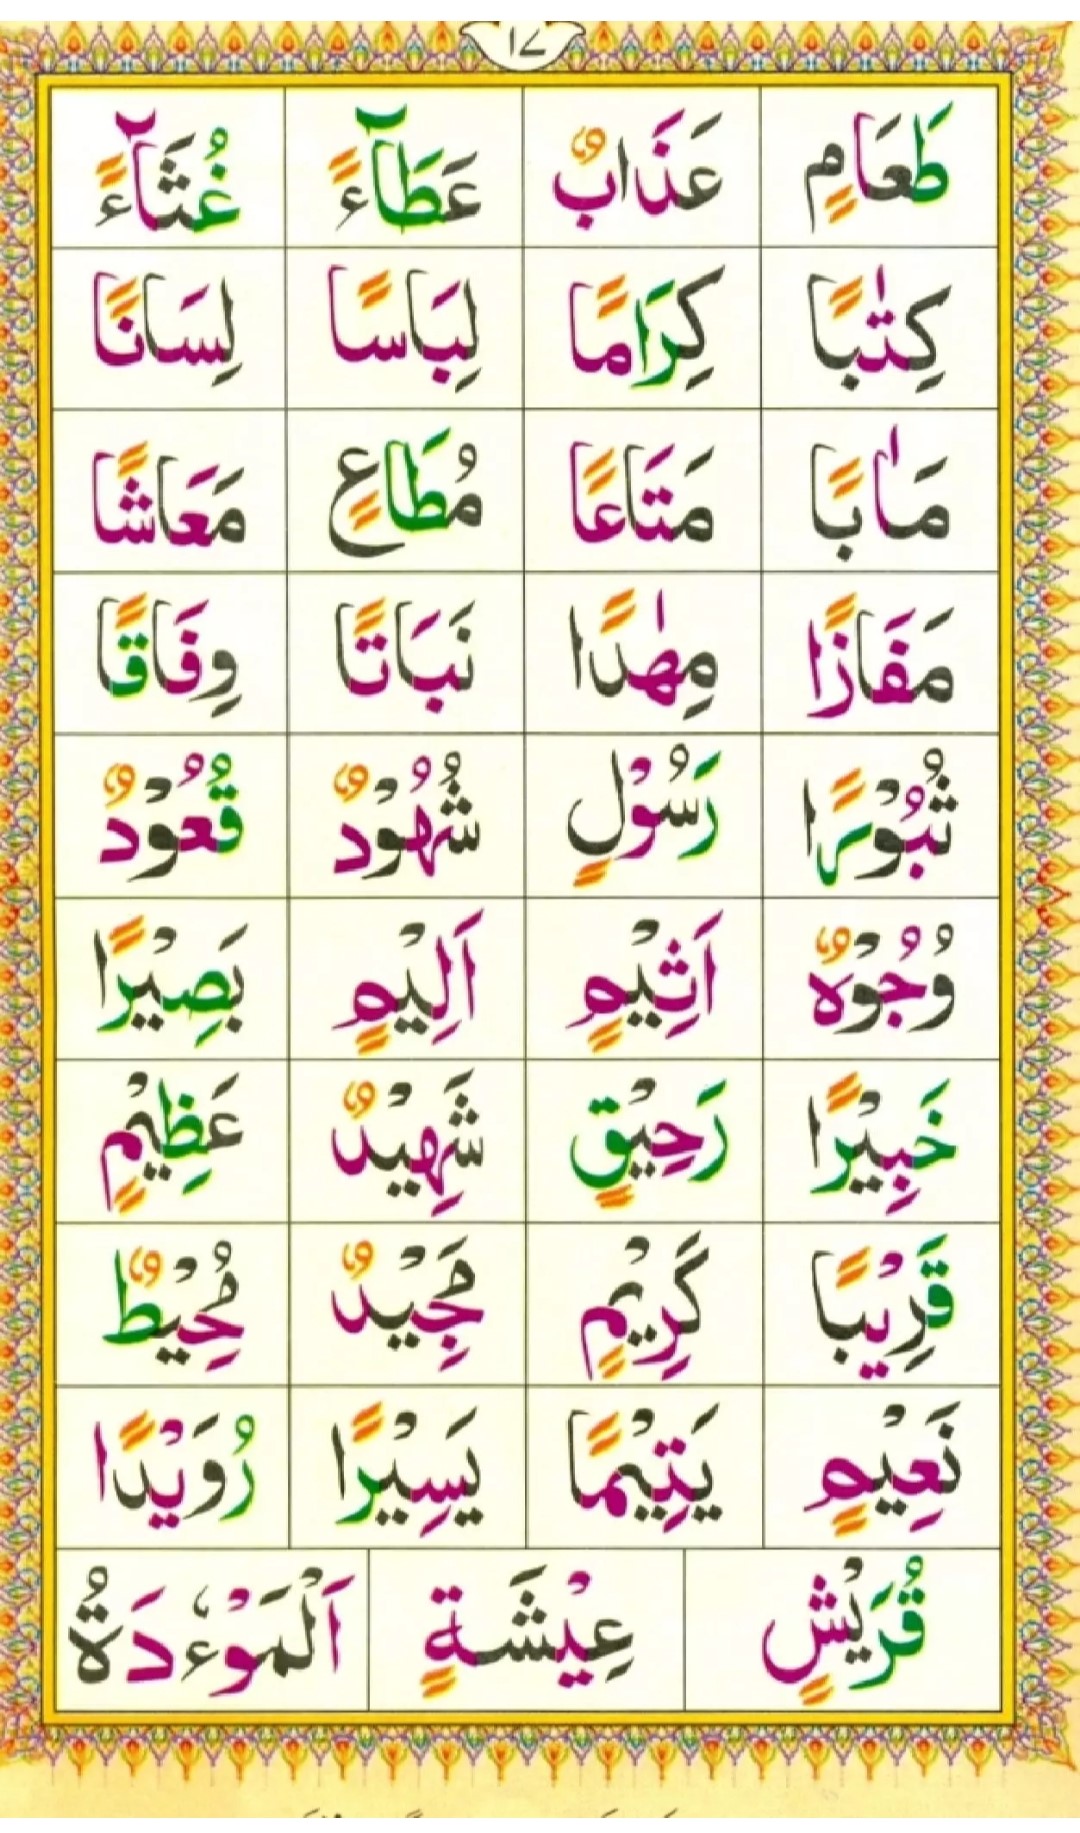 ۱۷
طَعَامٍ عَذَابٌ عَطَآءً غُثَآءً
كِتٰبًا كِرَامًا لِبَاسًا لِسَانًا
مَاٰبًا مَتَاعًا مُطَاعٍ مَعَاشًا
مَفَازًا مِهٰدًا نَبَاتًا وِفَاقًا
ثُبُوْرًا رَسُوْلٍ شُهُوْدٌ قُعُوْدٌ
وُجُوْهٌ اَثِيْمٍ اَلِيْمٍ بَصِيْرًا
خَبِيْرًا رَحِيْقٍ شَهِيْدٌ عَظِيْمٍ
قَرِيْبًا كَرِيْمٍ مَجِيْدٌ مُحِيْطٌ
نَعِيْمٍ يَتِيْمًا يَسِيْرًا رُوَيْدًا
قُرَيْشٍ عِيْشَةٍ اَلْمَوْءٗدَةُ